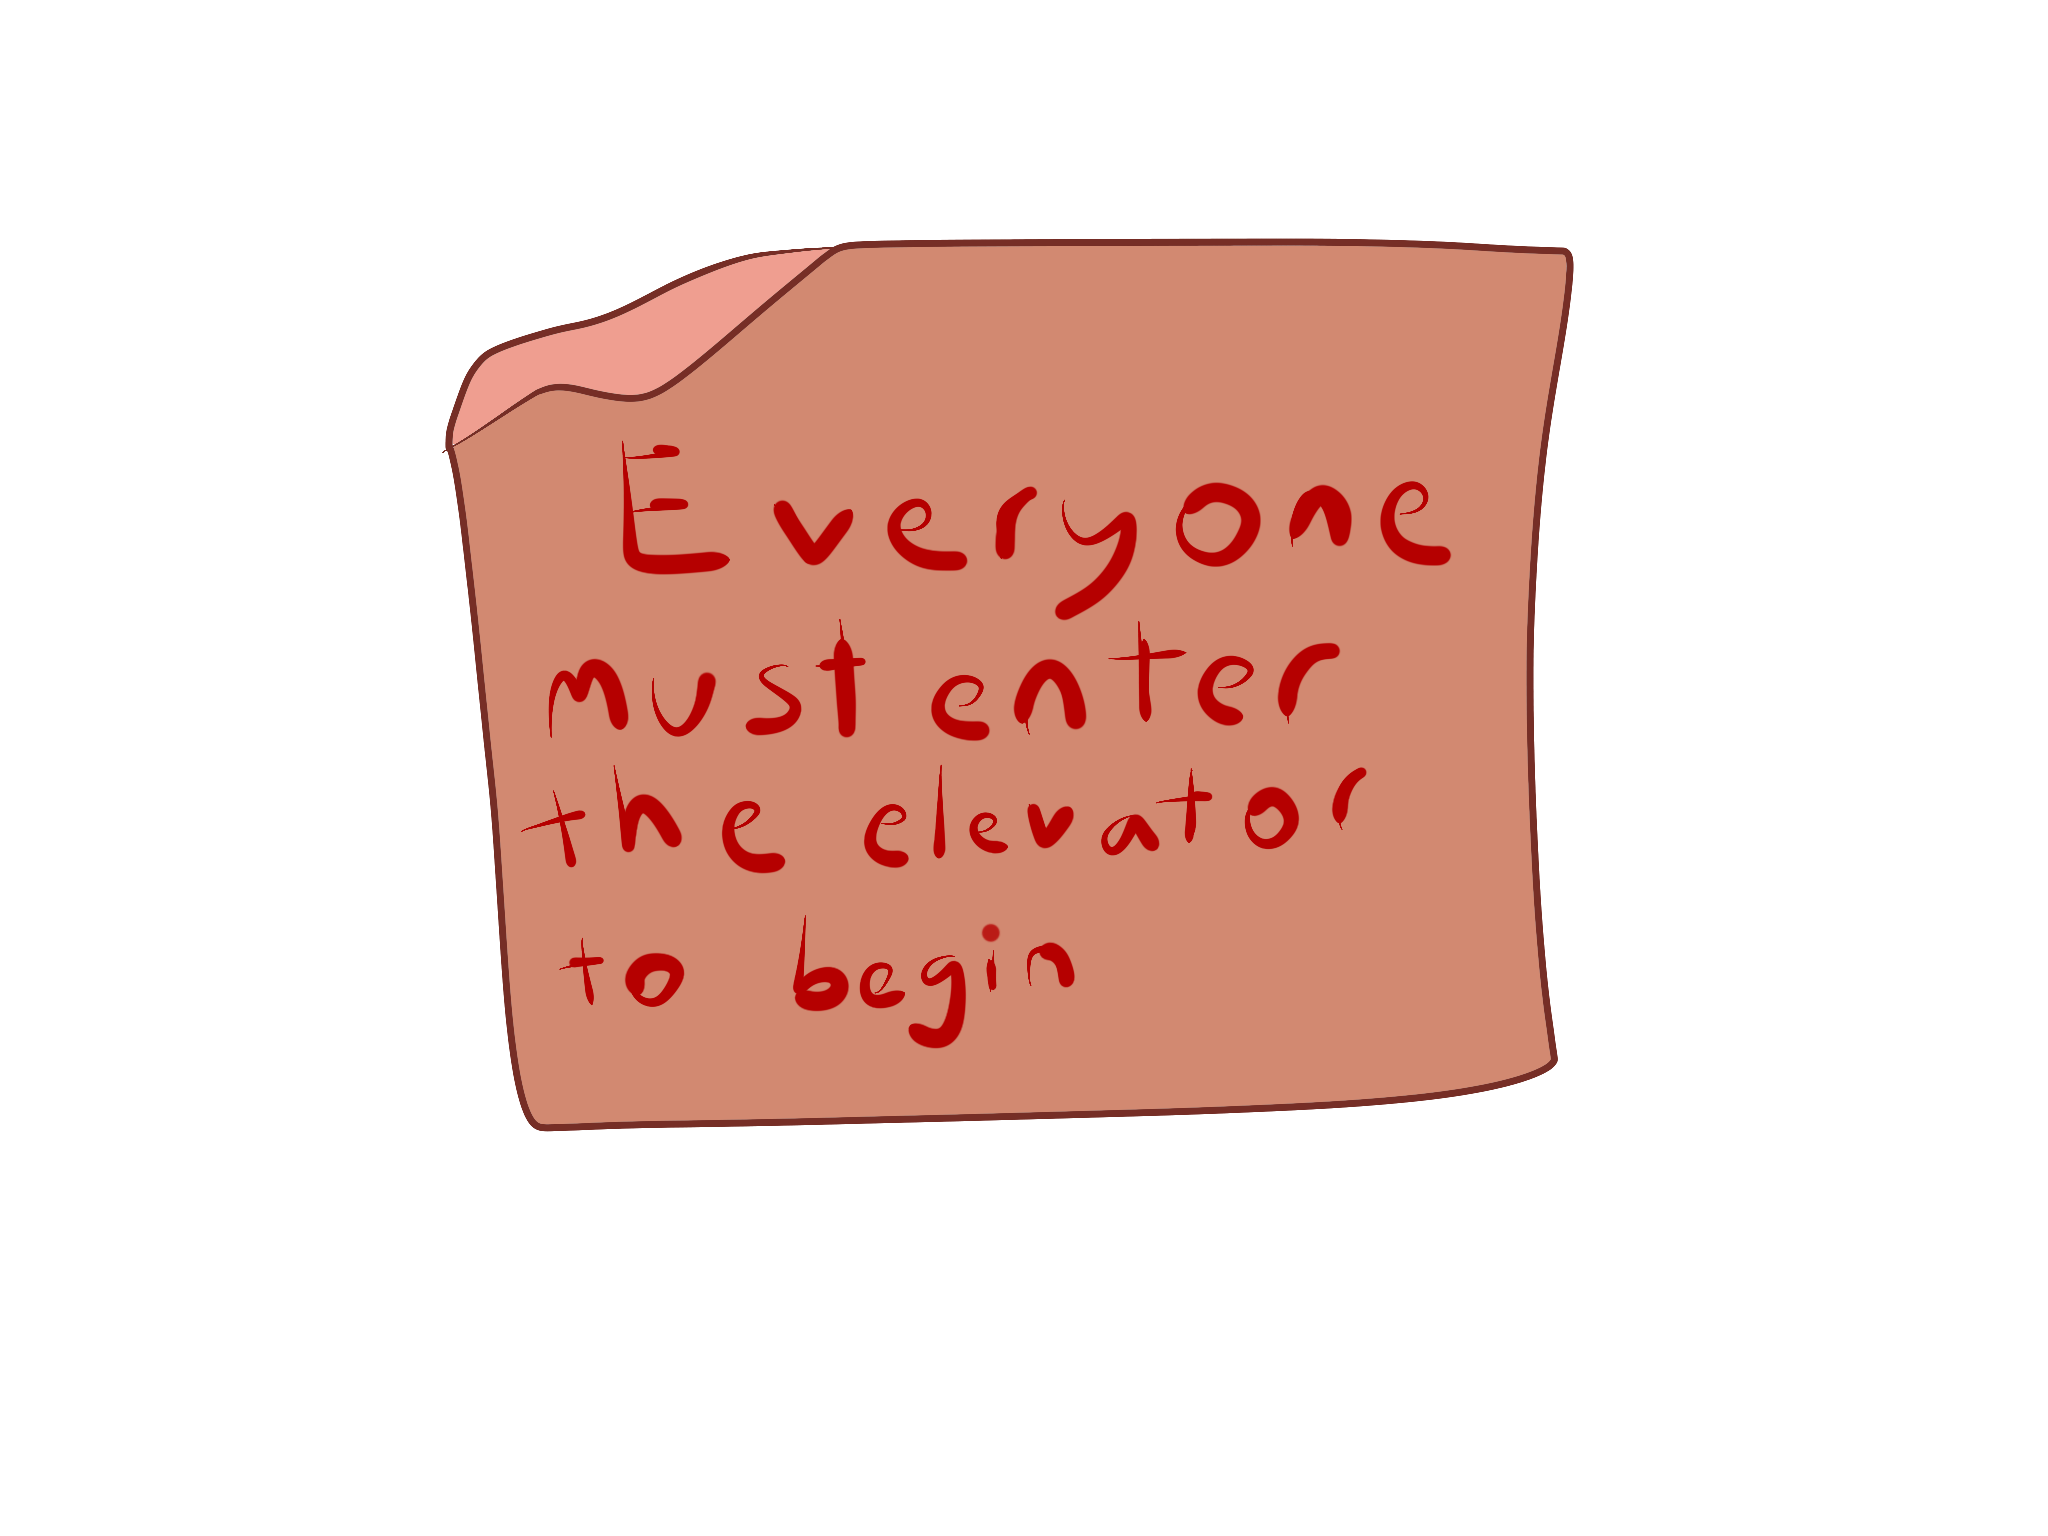 Everyone
must enter
the elevator
to begin